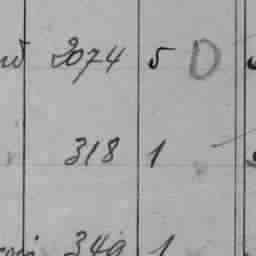 2074 5 D
318 1
349 1